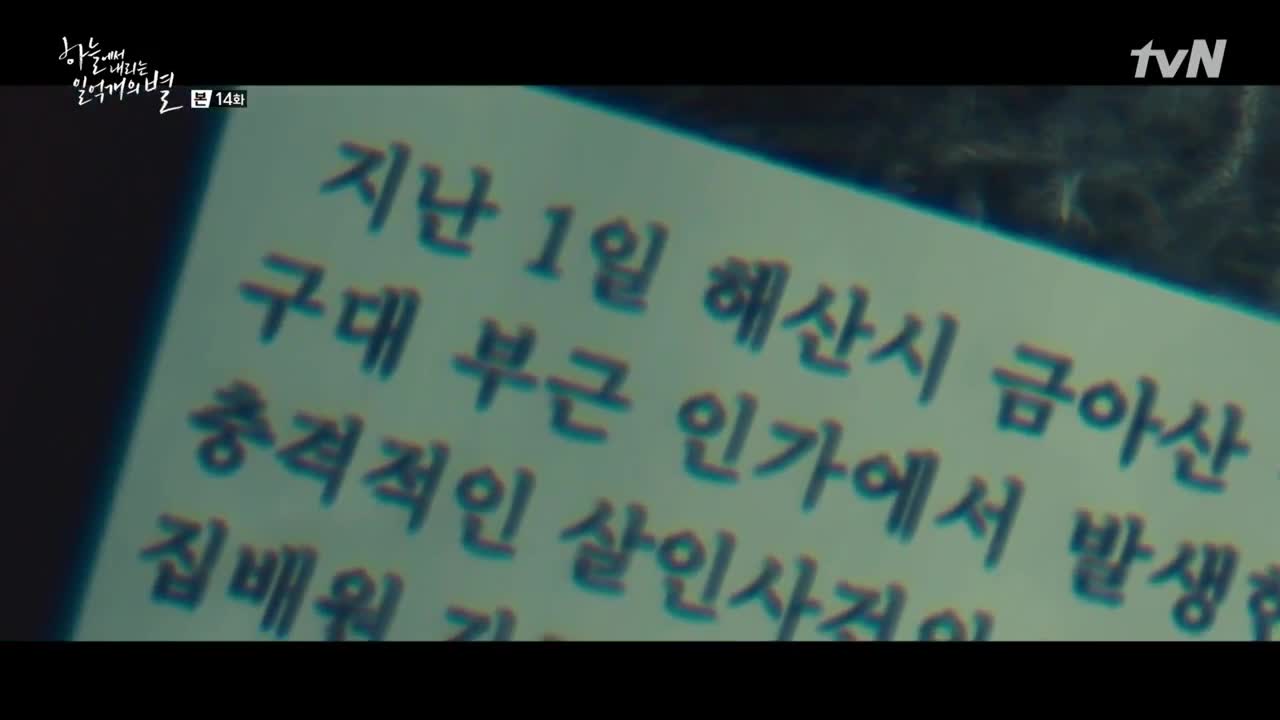 하늘에서
내리는
일억개의 별
본 14화
tvN
지난 1일 해산시 금아산
구대 부근 인가에서 발생한
충격적인 살인사건의
집배원